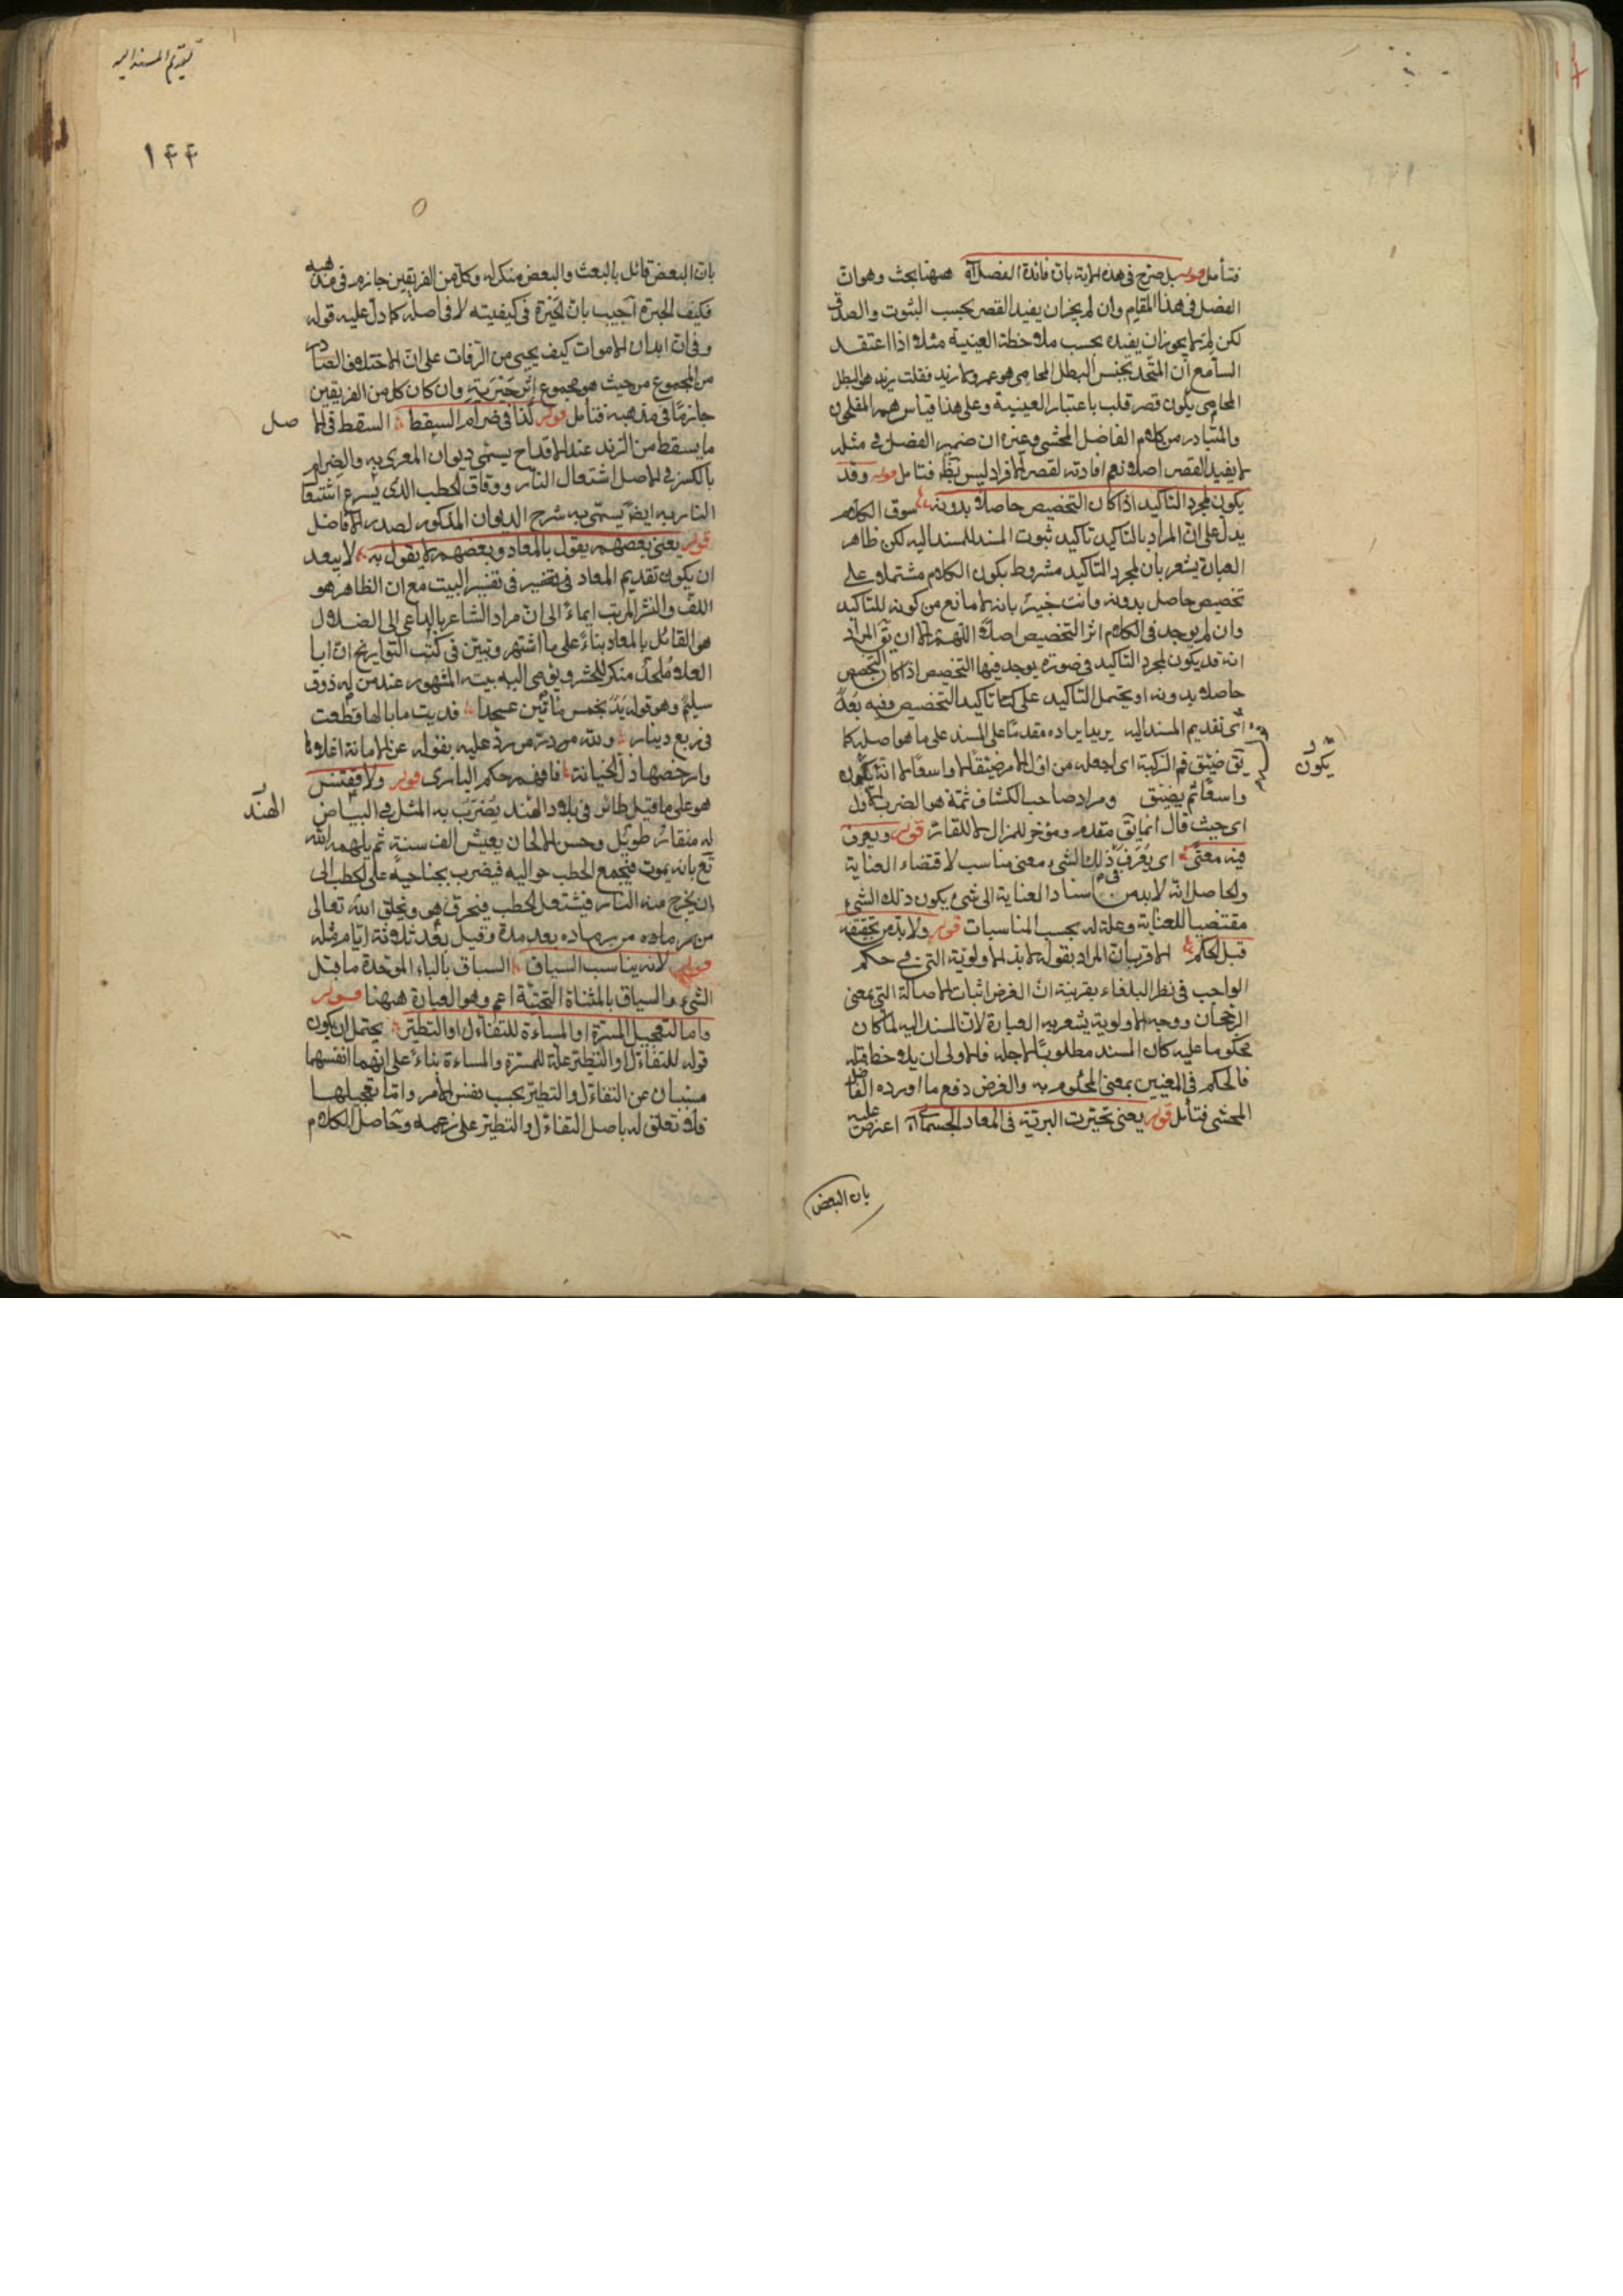 فتأمل قوله بل صرح في هذه الآية بان فائدة الفصل آه ههنا بحث وهو ان
الفصل في هذا المقام وان لم يجز ان يفيد القصر بحسب الثبوت والصدق
لكن لم لا يجوز ان يفيده بحسب ملاحظة العينية مثلا اذا اعتقد
السامع ان المتحد بجنس البطل المحامى هو عمرو لا زيد فقلت زيد هو البطل
المحامى يكون قصر قلب باعتبار العينية وعلى هذا قياس هم المفلحون
والمتبادر من كلام الفاضل المحشى وغيره ان ضمير الفصل في مثله
لا يفيد القصر اصلا نعم افادته لقصر الافراد ليس بظ فتأمل قوله وقد
يكون لمجرد التاكيد اذا كان التخصيص حاصلا بدونه سوق الكلام
يدل على ان المراد بالتاكيد تاكيد ثبوت المسند للمسند اليه لكن ظاهر
العبارة يشعر بان لمجرد التاكيد مشروط بكون الكلام مشتملا على
تخصيص حاصل بدونه وانت خبير بانه لا مانع من كونه للتاكيد
وان لم يوجد في الكلام اثر التخصيص اصلا اللهم الا ان يق المراد
انه قد يكون لمجرد التاكيد في صورة يوجد فيها التخصيص اذا كان التخصيص
حاصلا بدونه او يحتمل التاكيد على تاكيد التخصيص وفيه بعد
اى تقديم المسند اليه يريد ايراده مقدما على المسند على ما هو اصله كما
يق ضيق فم الركية اى اجعله من اول الامر ضيقا لا واسعا لا انه يكون
يكون
واسعا ثم يضيق ومراد صاحب الكشاف ثمة هو الضرب الاول
اى حيث قال انما يق مقدم ومؤخر للمزال لا للقار قوله ويعرف
فيه معنى اى يعرف في ذلك الشى معنى مناسب لاقتضاء العناية
والحاصل انه لا بد من اسناد العناية الى شى يكون ذلك الشى
مقتضيا للعناية وعلة له بحسب المناسبات قوله ولا بد من تحققه
قبل الحكم الاقرب ان المراد بقوله لا بد الاولوية التى في حكم
الواجب في نظر البلغاء بقرينة ان الغرض اثبات الاصالة التى بمعنى
الرجحان ووجه الاولوية يشعر به العبارة لان المسند اليه لما كان
محكوما عليه كان المسند مطلوبا لاجله فالاولى ان يلاحظ قبله
فالحكم في المعنيين بمعنى المحكوم به والغرض دفع ما اورده الفاضل
المحشى فتأمل قوله يعنى تحيرت البرية في المعاد الجسمانى آه اعترض عليه
بان البعض
تقديم المسند اليه
١٤٤
بان البعض قائل بالبعث والبعض منكر له وكلا من الفريقين جازم في مذهبه
فكيف الحيرة اجيب بان الحيرة في كيفيته لا في اصله كما دل عليه قوله
وفي ان ابدان الاموات كيف يحيى من الرفات على ان الاختلاف الصادر
من المجموع من حيث هو مجموع اثر حيرته وان كان كل من الفريقين
جازما في مذهبه فتأمل قوله كذا في ضرام السقط السقط في الاصل
ما يسقط من الزند عند الاقداح يسمى ديوان المعرى به والضرام
بالكسر في الاصل اشتعال النار ودقاق الحطب الذى يسرع اشتعال
النار به ايضا يسمى به شرح الديوان المذكور لصدر الافاضل
قوله يعنى بعضهم يقول بالمعاد وبعضهم لا يقول به لا يبعد
ان يكون تقديم المعاد في تفسير البيت مع ان الظاهر هو
اللف والنشر المرتب ايماء الى ان مراد الشاعر بالداعى الى الضلال
هو القائل بالمعاد بناء على ما اشتهر وتبين في كتب التواريخ ان ابا
العلا ملحد منكر للحشر ويومى اليه بيته المشهور عند من له ذوق
سليم وهو قوله يد بخمس مائين عسجدا فديت ما بالها قطعت
في ربع دينار ولله من رد عليه بقوله عز الامانة اغلاها
وارخصها ذل الخيانة فافهم حكم البارى قوله ولا ققنس
هو على ما قيل طائر في بلاد الهند يضرب به المثل في البياض
الهند
له منقار طويل وحسن الالحان يعيش الف سنة ثم يلهمه الله
تع بانه يموت فيجمع الحطب حواليه فيضرب بجناحيه على الحطب الى
ان يخرج منه النار فيشتعل الحطب فيحرق هو ويخلق الله تعالى
من رماده بعد مدة وقيل بعد ثلاثة ايام مثله
قوله لانه يناسب السياق السباق بالباء الموحدة ما قبل
الشى والسياق بالمثناة التحتية اعم وهو العبارة ههنا قوله
واما لتعجيل المسرة او المساءة للتفاؤل او التطير يحتمل ان يكون
قوله للتفاؤل او التطير علة للمسرة والمساءة بناء على انهما انفسهما
مسببان عن التفاؤل والتطير بحسب نفس الامر واما تعجيلها
فلا تعلق له باصل التفاؤل والتطير على زعمه وحاصل الكلام